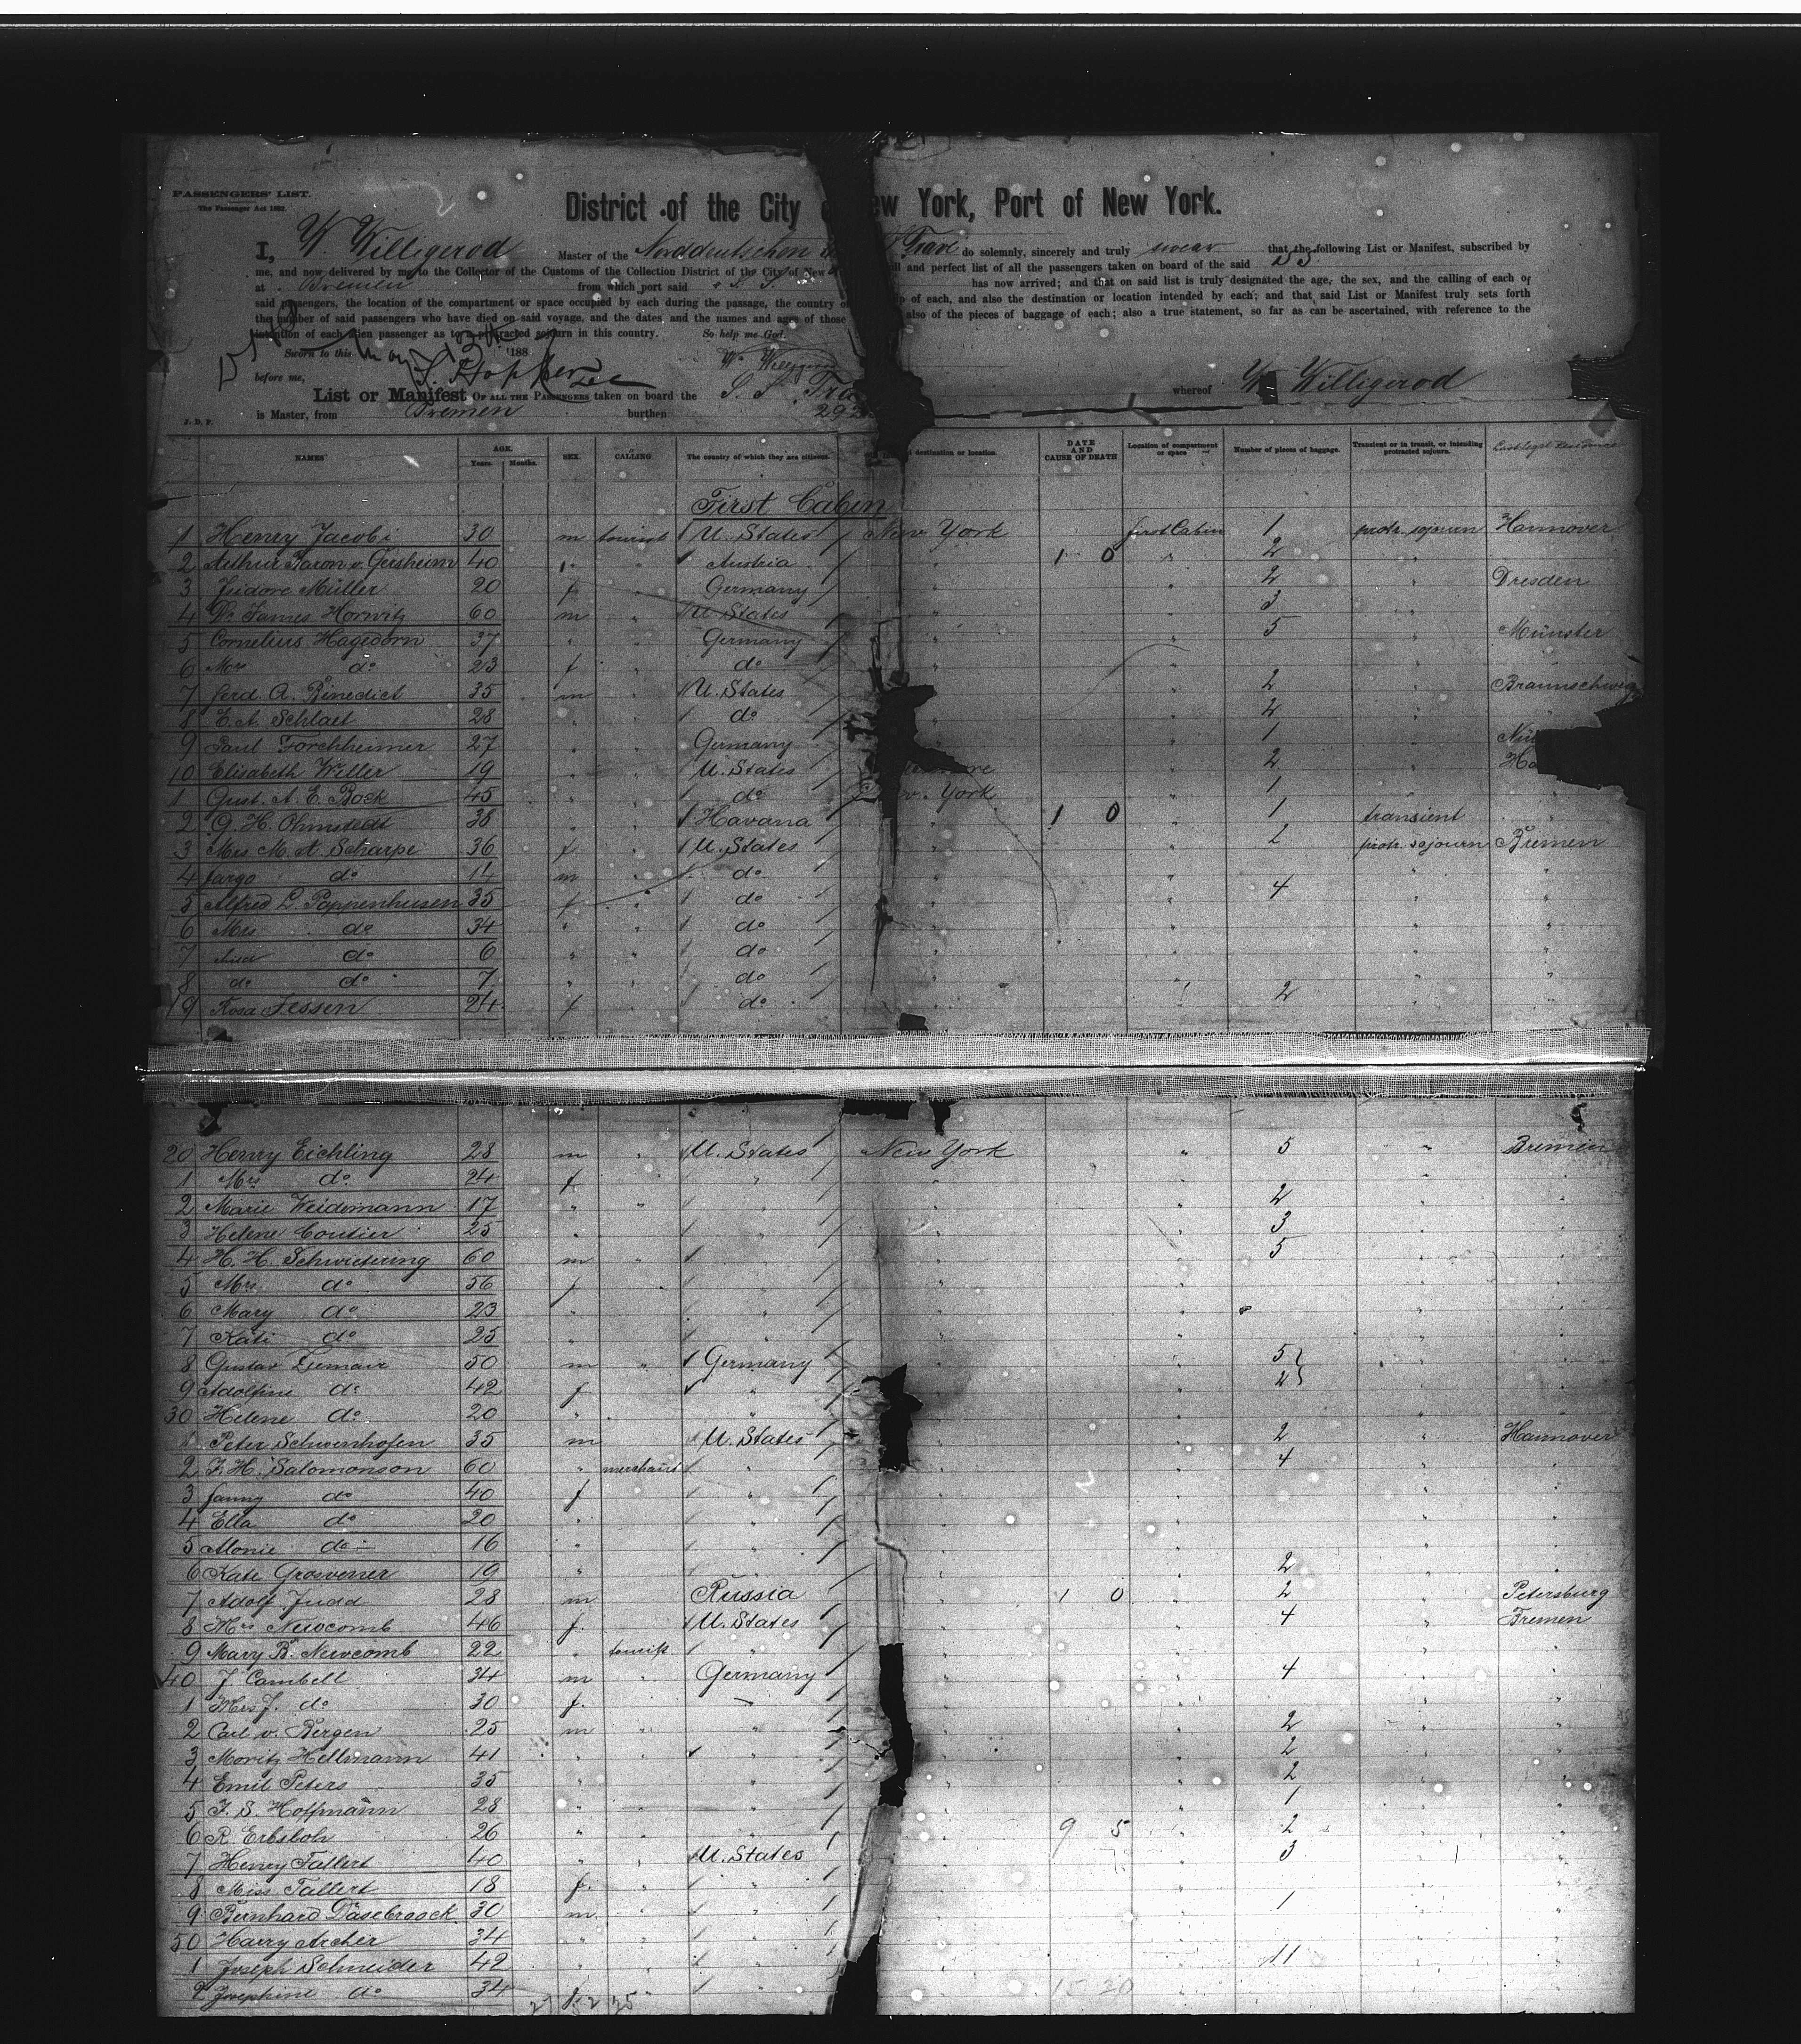 PASSENGERS' LIST.
The Passenger Act 1882.
District of the City ew York, Port of New York.
I, W. Willigerod Master of the Norddeutschen Trave do solemnly, sincerely and truly swear that the following List or Manifest, subscribed by
me, and now delivered by me to the Collector of the Customs of the Collection District of the City of New ll and perfect list of all the passengers taken on board of the said S.S.
at Bremen from which port said S.S. has now arrived; and that on said list is truly designated the age, the sex, and the calling of each of
said passengers, the location of the compartment or space occupied by each during the passage, the country of p of each, and also the destination or location intended by each; and that said List or Manifest truly sets forth
the number of said passengers who have died on said voyage, and the dates and the names and ages of those also of the pieces of baggage of each; also a true statement, so far as can be ascertained, with reference to the
intention of each alien passenger as to a protracted sojourn in this country. So help me God.
Sworn to this May 13th 188
before me,
List or Manifest OF ALL THE PASSENGERS taken on board the S.S. Tra whereof W. Willigerod
is Master, from Bremen burthen 292
J. D. P.
NAMES AGE. Years. Months. SEX. CALLING The country of which they are citizens. destination or location. DATE AND CAUSE OF DEATH Location of compartment or space Number of pieces of baggage. Transient or in transit, or intending protracted sojourn. Last legal Residence
First Cabin
1 Henry Jacobi 30 m tourist U. States New York first Cabin 1 protr. sojourn Hannover
2 Arthur Baron v. Gersheim 40 " " Austria " 1 0 " 2 "
3 Isidore Müller 20 f " Germany " " 2 " Dresden
4 Dr. James Horwitz 60 m " U. States " " 3 "
5 Cornelius Hagedorn 37 " " Germany " " 5 " Münster
6 Mrs do 23 f " do " " "
7 Ferd. A. Benedict 35 m " U. States " " 2 " Braunschweig
8 E. A. Schlaet 28 " " do " " 2 "
9 Paul Forchheimer 27 " " Germany " " 1 "
10 Elisabeth Weller 19 " " U. States " 2 "
1 Gust. A. E. Bock 45 " " do York " 1 "
2 G. H. Ohmstedt 38 " " Havana " 1 0 " 1 transient "
3 Mrs M. A. Scharpe 36 f " U. States " " 2 protr. sojourn Bremen
4 Fargo do 14 m " do " " " "
5 Alfred L. Poppenhusen 35 f " do " " 4 " "
6 Mrs do 34 " " do " " " "
7 child do 6 " " do " " " "
8 do do 7 " " do " " " "
19 Rosa Jessen 24 f " do " " 2 " "
20 Henry Eichling 28 m " U. States New York " 5 " Bremen
1 Mrs do 24 f " " " " "
2 Marie Weidemann 17 " " " " " 2 " "
3 Helene Coutier 25 " " " " 3 " "
4 H. H. Schwietering 60 m " " " " 5 " "
5 Mrs. do 56 f " " " " "
6 Mary do 23 " " " " " "
7 Käti do 25 " " " " " "
8 Gustav 50 m " Germany " " 5 " "
9 Adolfine do 42 f " " " 2 " "
30 Helene do 20 " " " " " "
1 Peter Schoenhofen 35 m U. States " " 2 " Hannover
2 F. H. Salomonson 60 " merchant " " " 4 " "
3 Fanny do 40 f " " " " "
4 Ella do 20 " " " " " "
5 do 16 " " " " " "
6 Kate Grosvener 19 " " " " 2 " "
7 Adolf Judd 28 m Russia " 1 0 " 2 " Petersburg
8 Mrs Newcomb 46 f. U. States " " 4 " Bremen
9 Mary B. Newcomb 22 " tourist " " " " "
40 J. Cambell 34 m " Germany " " 4 " "
1 Mrs J. do 30 f. " " " " "
2 Carl v. Bergen 25 m " " " " 2 " "
3 Moritz Hellmann 41 " " " " " 2 " "
4 Emil Peters 35 " " " " " 2 " "
5 F. S. Hoffmann 28 " " " " " 1 " "
6 R. Erbsloh 26 " " " " 9 5 " 2 " "
7 Henry Tallert 40 " " U. States " " 3 " "
8 Miss Tallert 18 f. " " " " " "
9 Bernhard Dasebroock 30 m " " " " 1 " "
50 Harry Archer 34 " " " " " " "
1 Joseph Schneider 42 " " " " " 11 " "
2 Josephine do 34 " " " " "
15 30